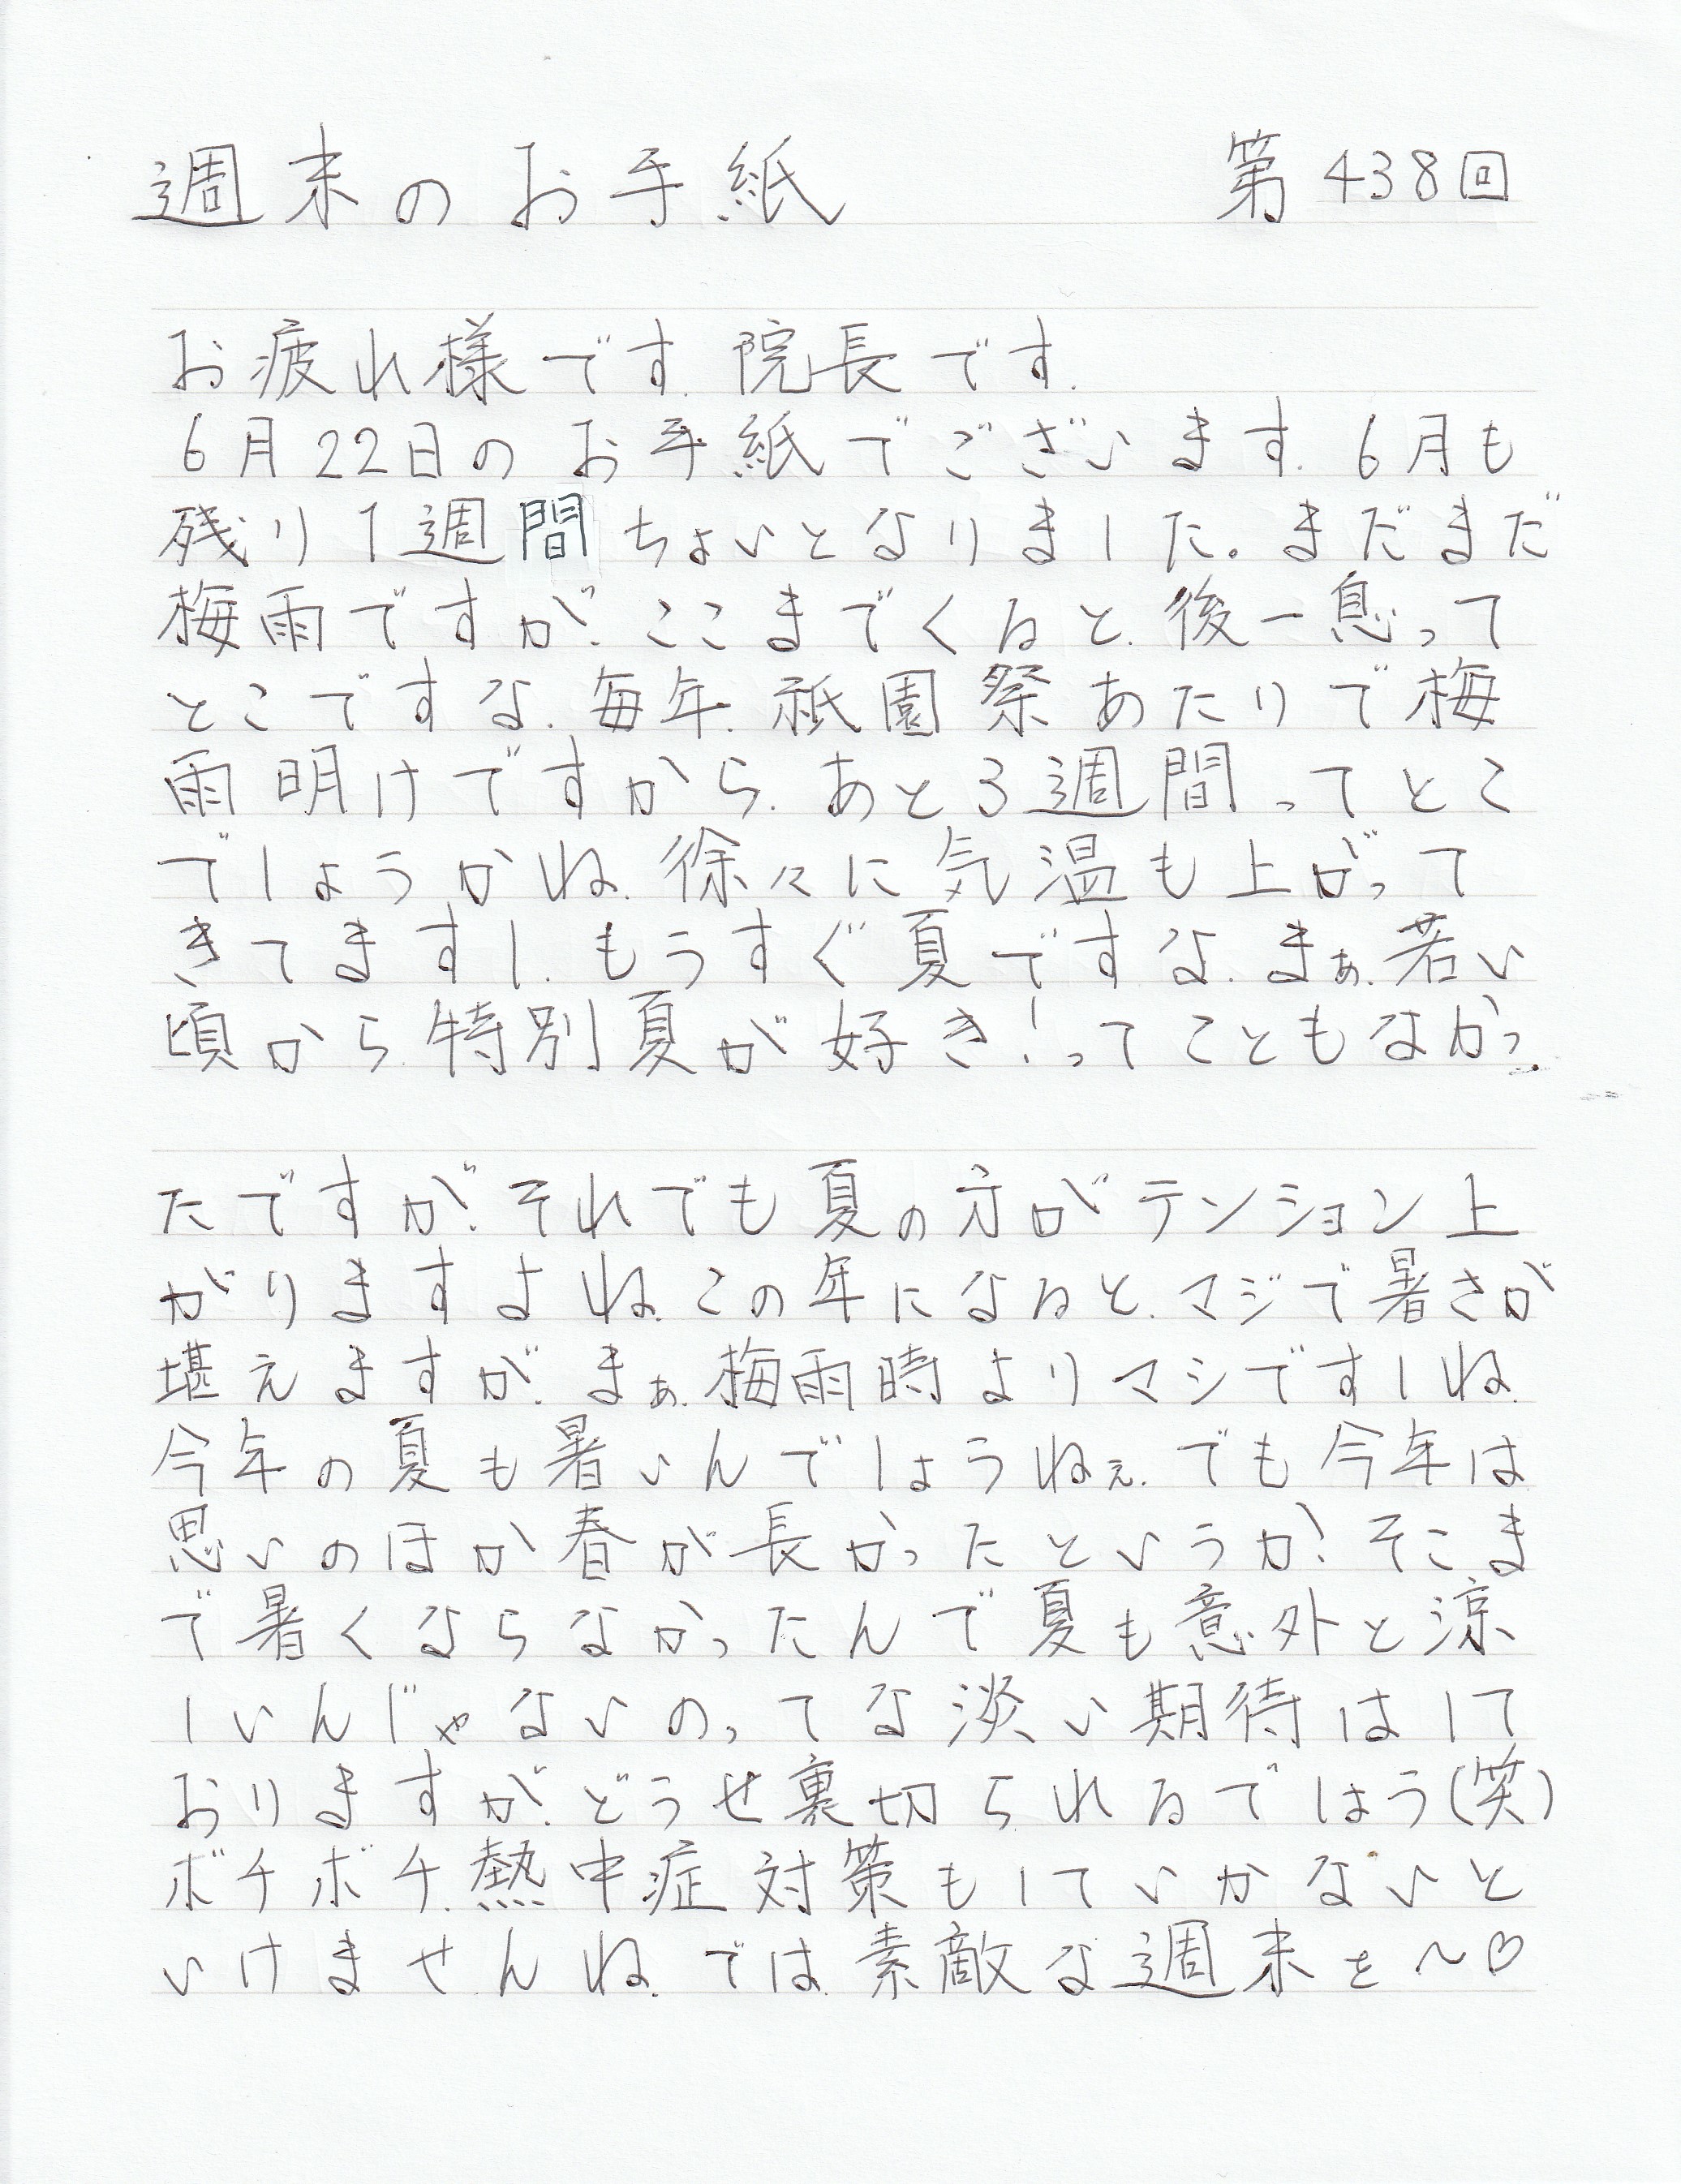 週末のお手紙 第438回
お疲れ様です.院長です.
6月22日のお手紙でございます.6月も
残り1週間ちょいとなりました。まだまだ
梅雨ですが、ここまでくると、後一息って
とこですな.毎年.祇園祭あたりで梅
雨明けですから.あと3週間ってとこ
でしょうかね.徐々に気温も上がって
きてますし.もうすぐ夏ですな.まぁ.若い
頃から特別夏が好き!ってこともなかっ
たですが、それでも夏の方がテンション上
がりますよね.この年になると、マジで暑さが
堪えますが、まぁ.梅雨時よりマシですしね.
今年の夏も暑いんでしょうねぇ.でも今年は
思いのほか春が長かったというか!そこま
で暑くならなかったんで夏も意外と涼
しいんじゃないの、ってな淡い期待はして
おりますが、どうせ裏切られるでしょう(笑)
ボチボチ.熱中症対策もしていかないと
いけませんね.では.素敵な週末を〜♡